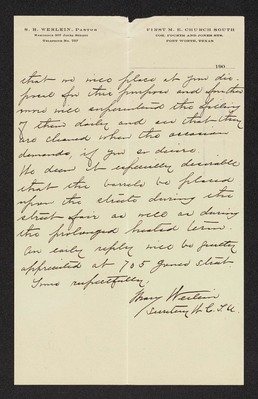 S. H. WERLEIN, Pastor
FIRST M. E. CHURCH SOUTH
COR. FOURTH AND JONES STS.
FORT WORTH, TEXAS
190
that we will place at your dis-
posal for this purpose and further
more will superintend the filling
of them daily and see that they
are cleaned when the occasion
demands, if you so desire.
We deem it especially desirable
that the barrels be placed
upon the streets during the
street fair as well as during
the prolonged heated term.
An early reply will be greatly
appreciated at 705 Jones Street
Yours respectfully,
Mary Werlein
Secretary W. C. T. U.